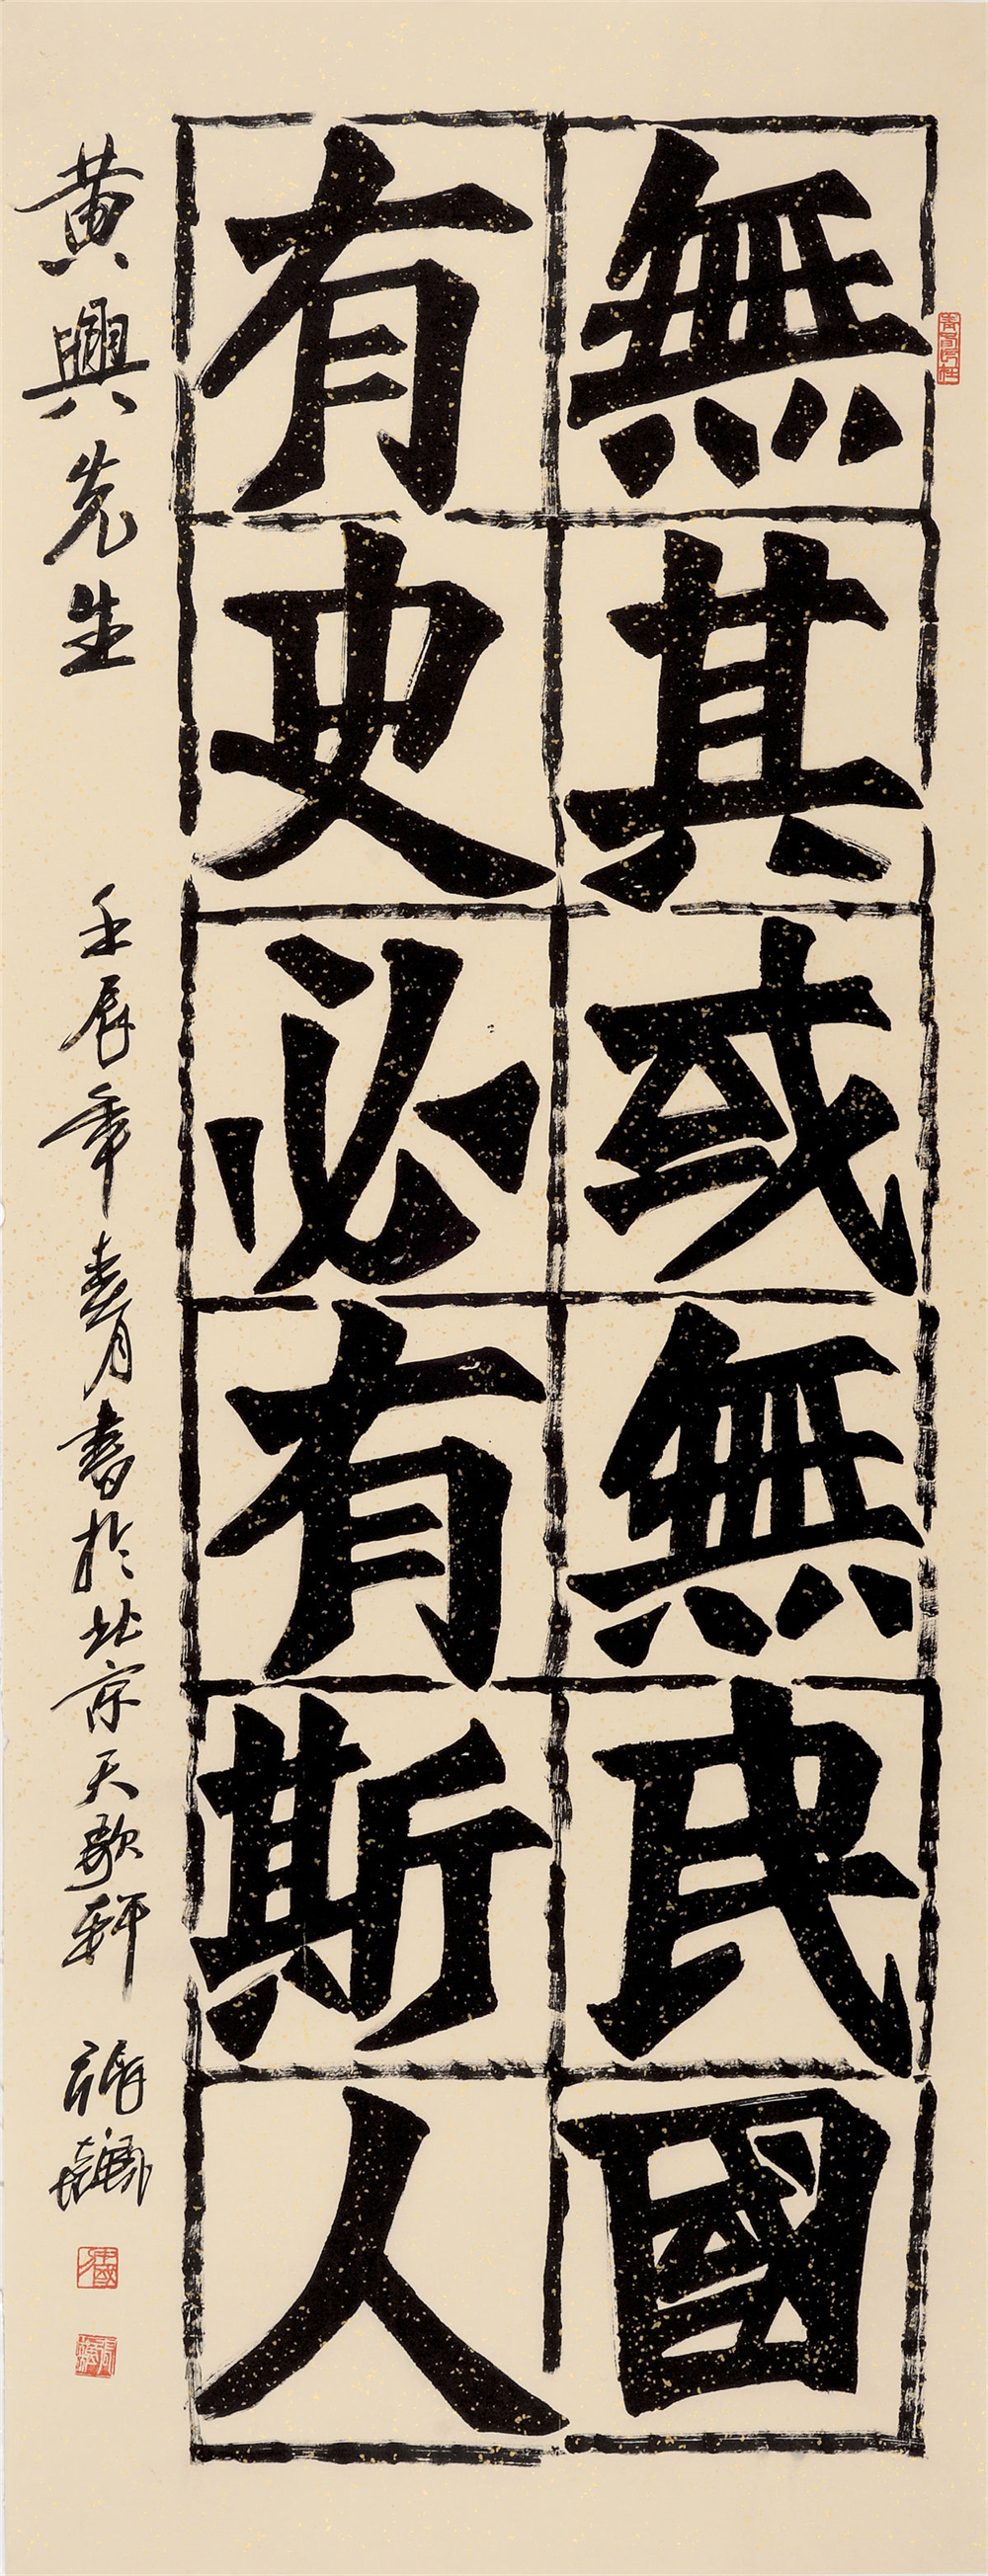 無其或無民國
有史必有斯人
黄興先生 壬辰年春月書於北京天歌軒